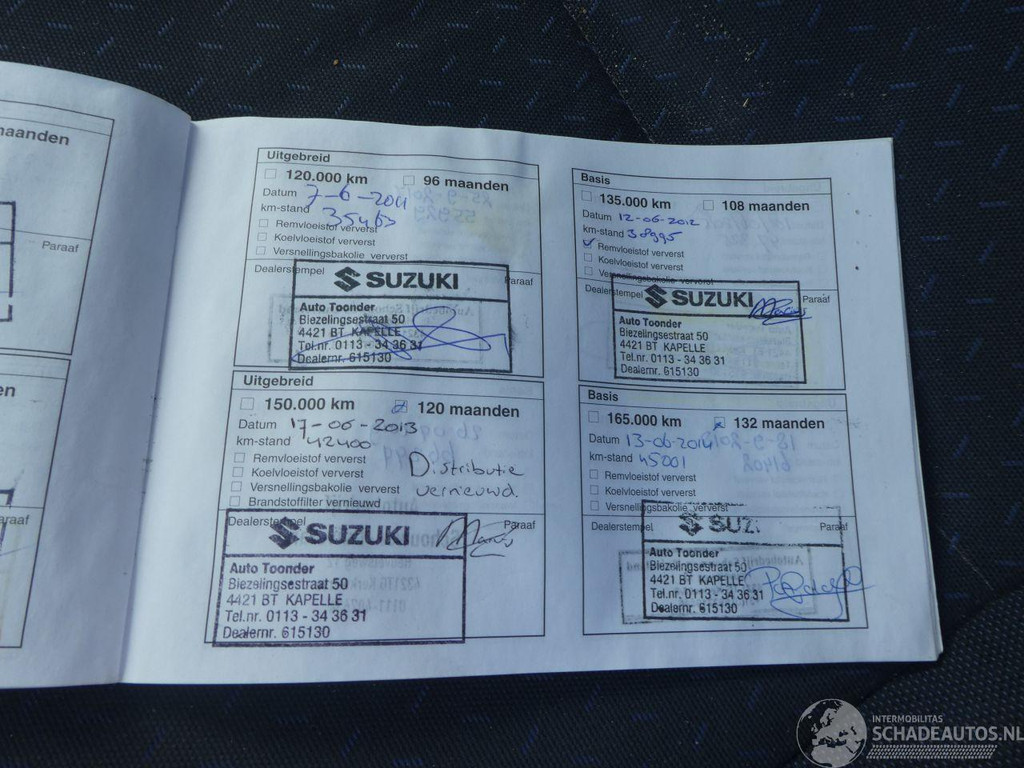 maanden
Paraaf
en
Paraaf
Uitgebreid
120.000 km 96 maanden
Datum 7-6-2011
km-stand 35463
Remvloeistof ververst
Koelvloeistof ververst
Versnellingsbakolie ververst
Dealerstempel Paraaf
SUZUKI
Auto Toonder
Biezelingsestraat 50
4421 BT KAPELLE
Tel.nr. 0113 - 34 36 31
Dealernr. 615130
Basis
135.000 km 108 maanden
Datum 12-06-2012
km-stand 38995
Remvloeistof ververst
Koelvloeistof ververst
Versnellingsbakolie ververst
Dealerstempel Paraaf
SUZUKI
Auto Toonder
Biezelingsestraat 50
4421 BT KAPELLE
Tel.nr. 0113 - 34 36 31
Dealernr. 615130
Uitgebreid
150.000 km 120 maanden
Datum 17-06-2013
km-stand 42400
Remvloeistof ververst
Koelvloeistof ververst
Versnellingsbakolie ververst
Brandstoffilter vernieuwd
Distributie
vernieuwd.
Dealerstempel Paraaf
SUZUKI
Auto Toonder
Biezelingsestraat 50
4421 BT KAPELLE
Tel.nr. 0113 - 34 36 31
Dealernr. 615130
Basis
165.000 km 132 maanden
Datum 13-06-2014
km-stand 45001
Remvloeistof ververst
Koelvloeistof ververst
Versnellingsbakolie ververst
Dealerstempel Paraaf
SUZ
Auto Toonder
Biezelingsestraat 50
4421 BT KAPELLE
Tel.nr. 0113 - 34 36 31
Dealernr. 615130
INTERMOBILITAS
SCHADEAUTOS.NL